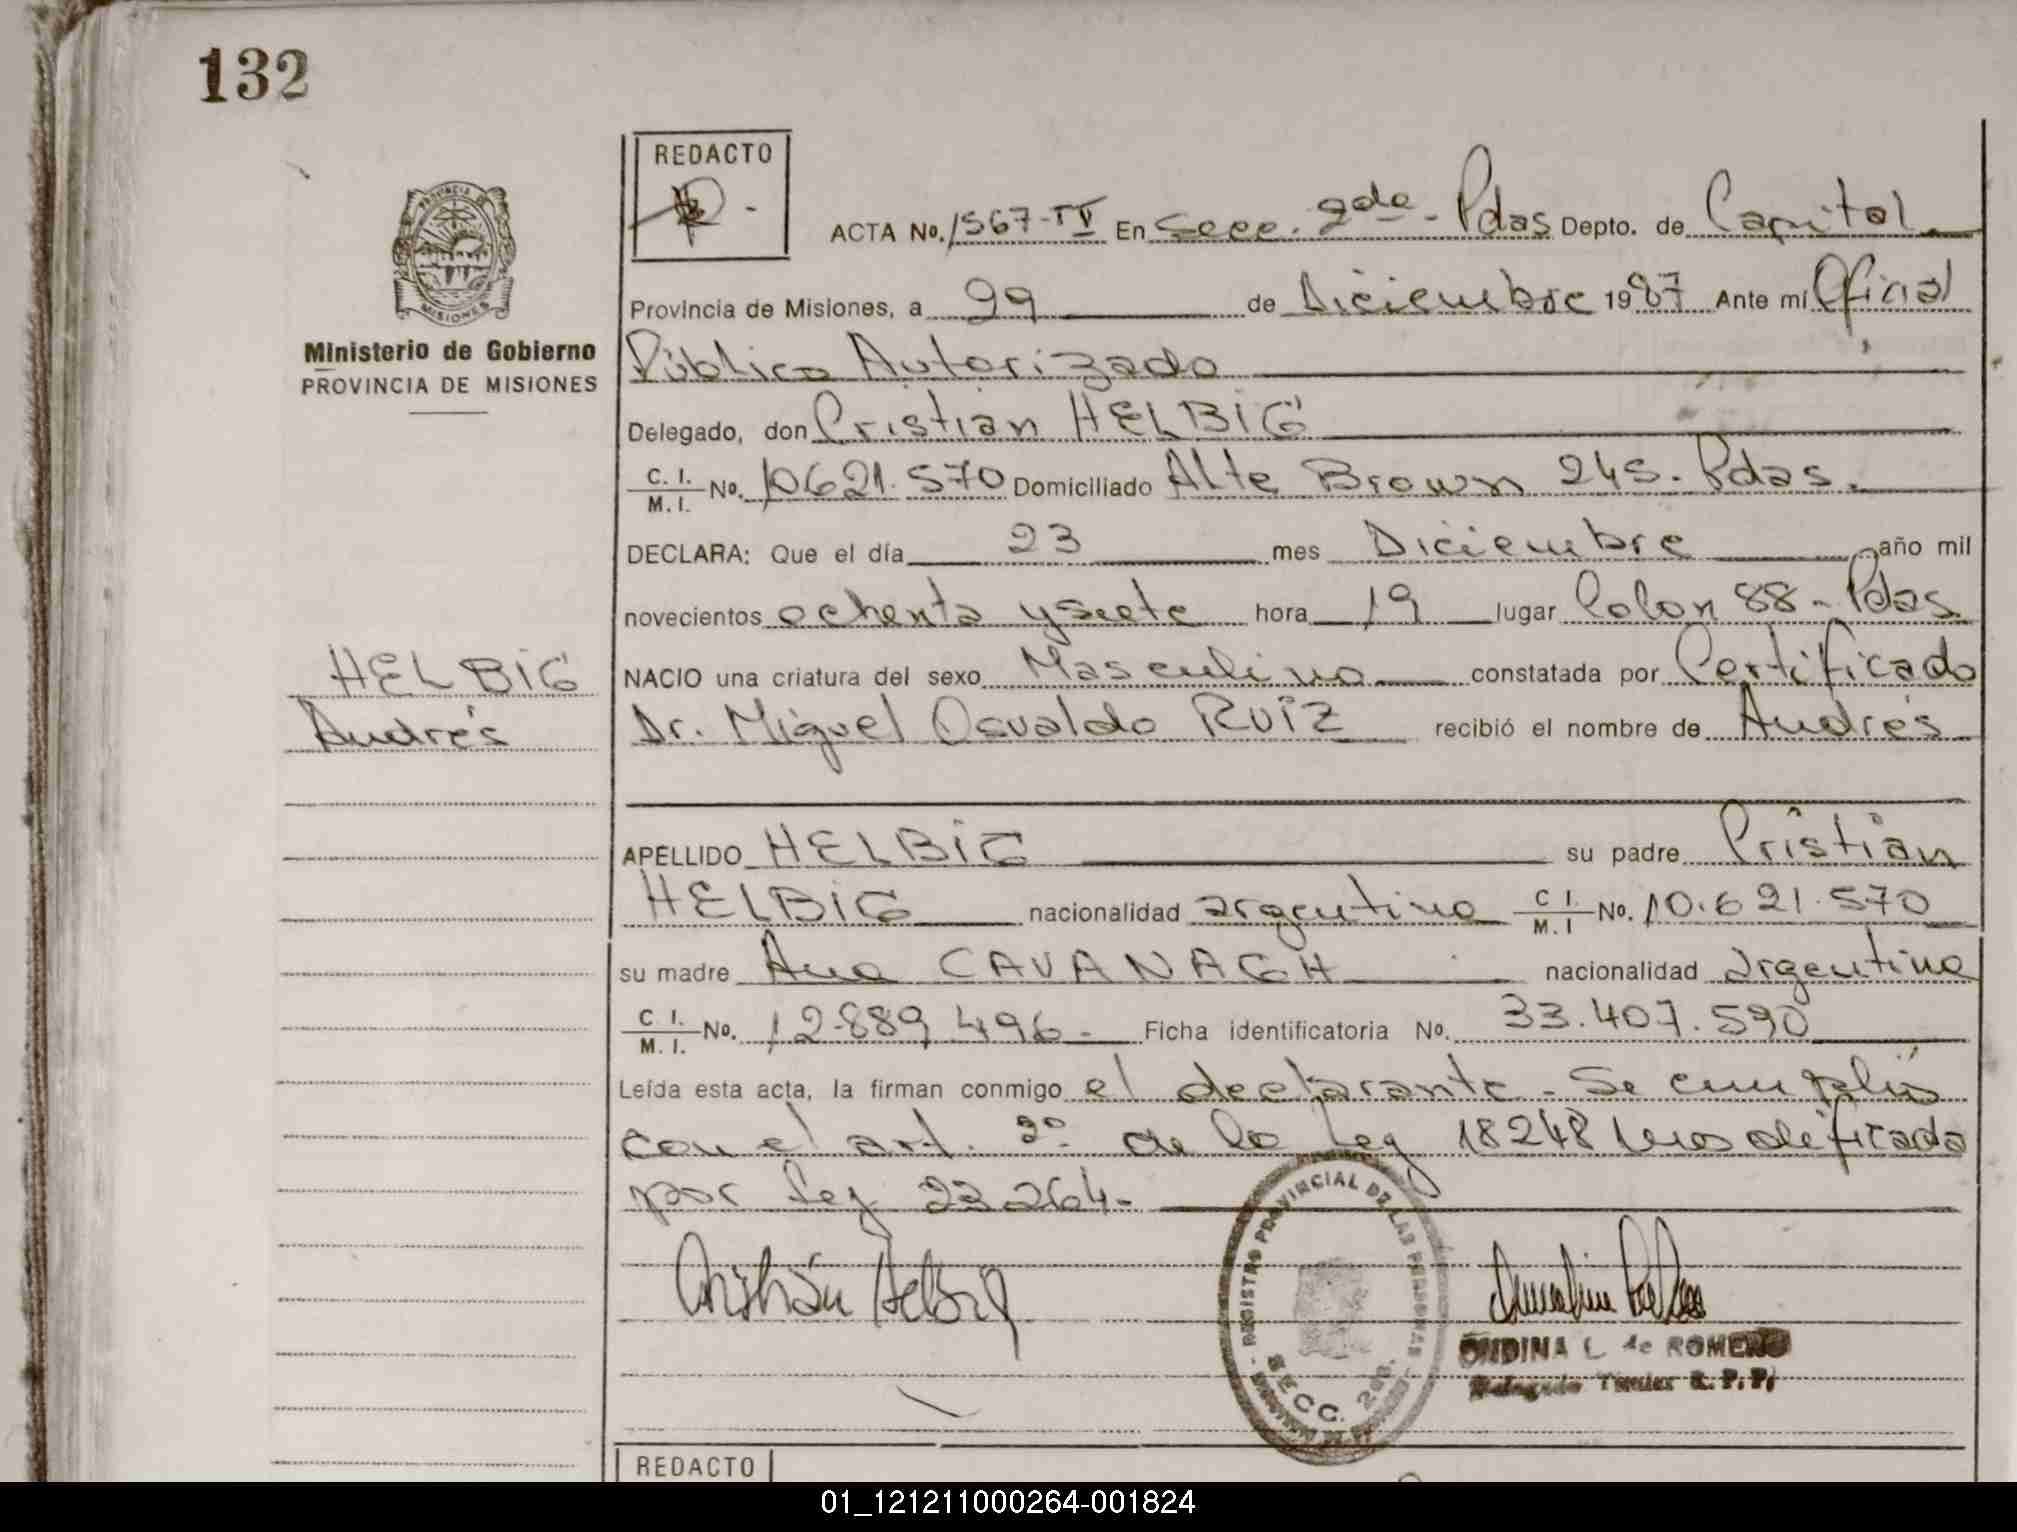 132
REDACTO
ACTA No. 1567-IV En Secc. 2da - Pdas Depto. de Capital
PROVINCIA
MISIONES
Provincia de Misiones, a 29 de Diciembre 1987 Ante mí Oficial
Ministerio de Gobierno
PROVINCIA DE MISIONES
Público Autorizado
Delegado, don Cristian HELBIG
C. I. / M. I. No. 10621.570 Domiciliado Alte Brown 245. Pdas.
DECLARA: Que el día 23 mes Diciembre año mil
novecientos ochenta y siete hora 19 lugar Colon 88 - Pdas
HELBIG
NACIO una criatura del sexo Masculino constatada por Certificado
Andrés
Dr. Miguel Osvaldo RUIZ recibió el nombre de Andrés
APELLIDO HELBIG su padre Cristian
HELBIG nacionalidad argentino C I. / M. I No. 10.621.570
su madre Ana CAVANAGH nacionalidad argentina
C I. / M. I. No. 12.889.496- Ficha identificatoria No. 33.407.590
Leída esta acta, la firman conmigo el declarante - Se cumplió
con el art. 2º de la Ley 18248 modificada
por Ley 23264-
Cristián Helbig
REGISTRO PROVINCIAL DE LAS PERSONAS
SECC. 2da.
ONDINA L de ROMERO
Delegada Titular R. P. P.
REDACTO
01_121211000264-001824